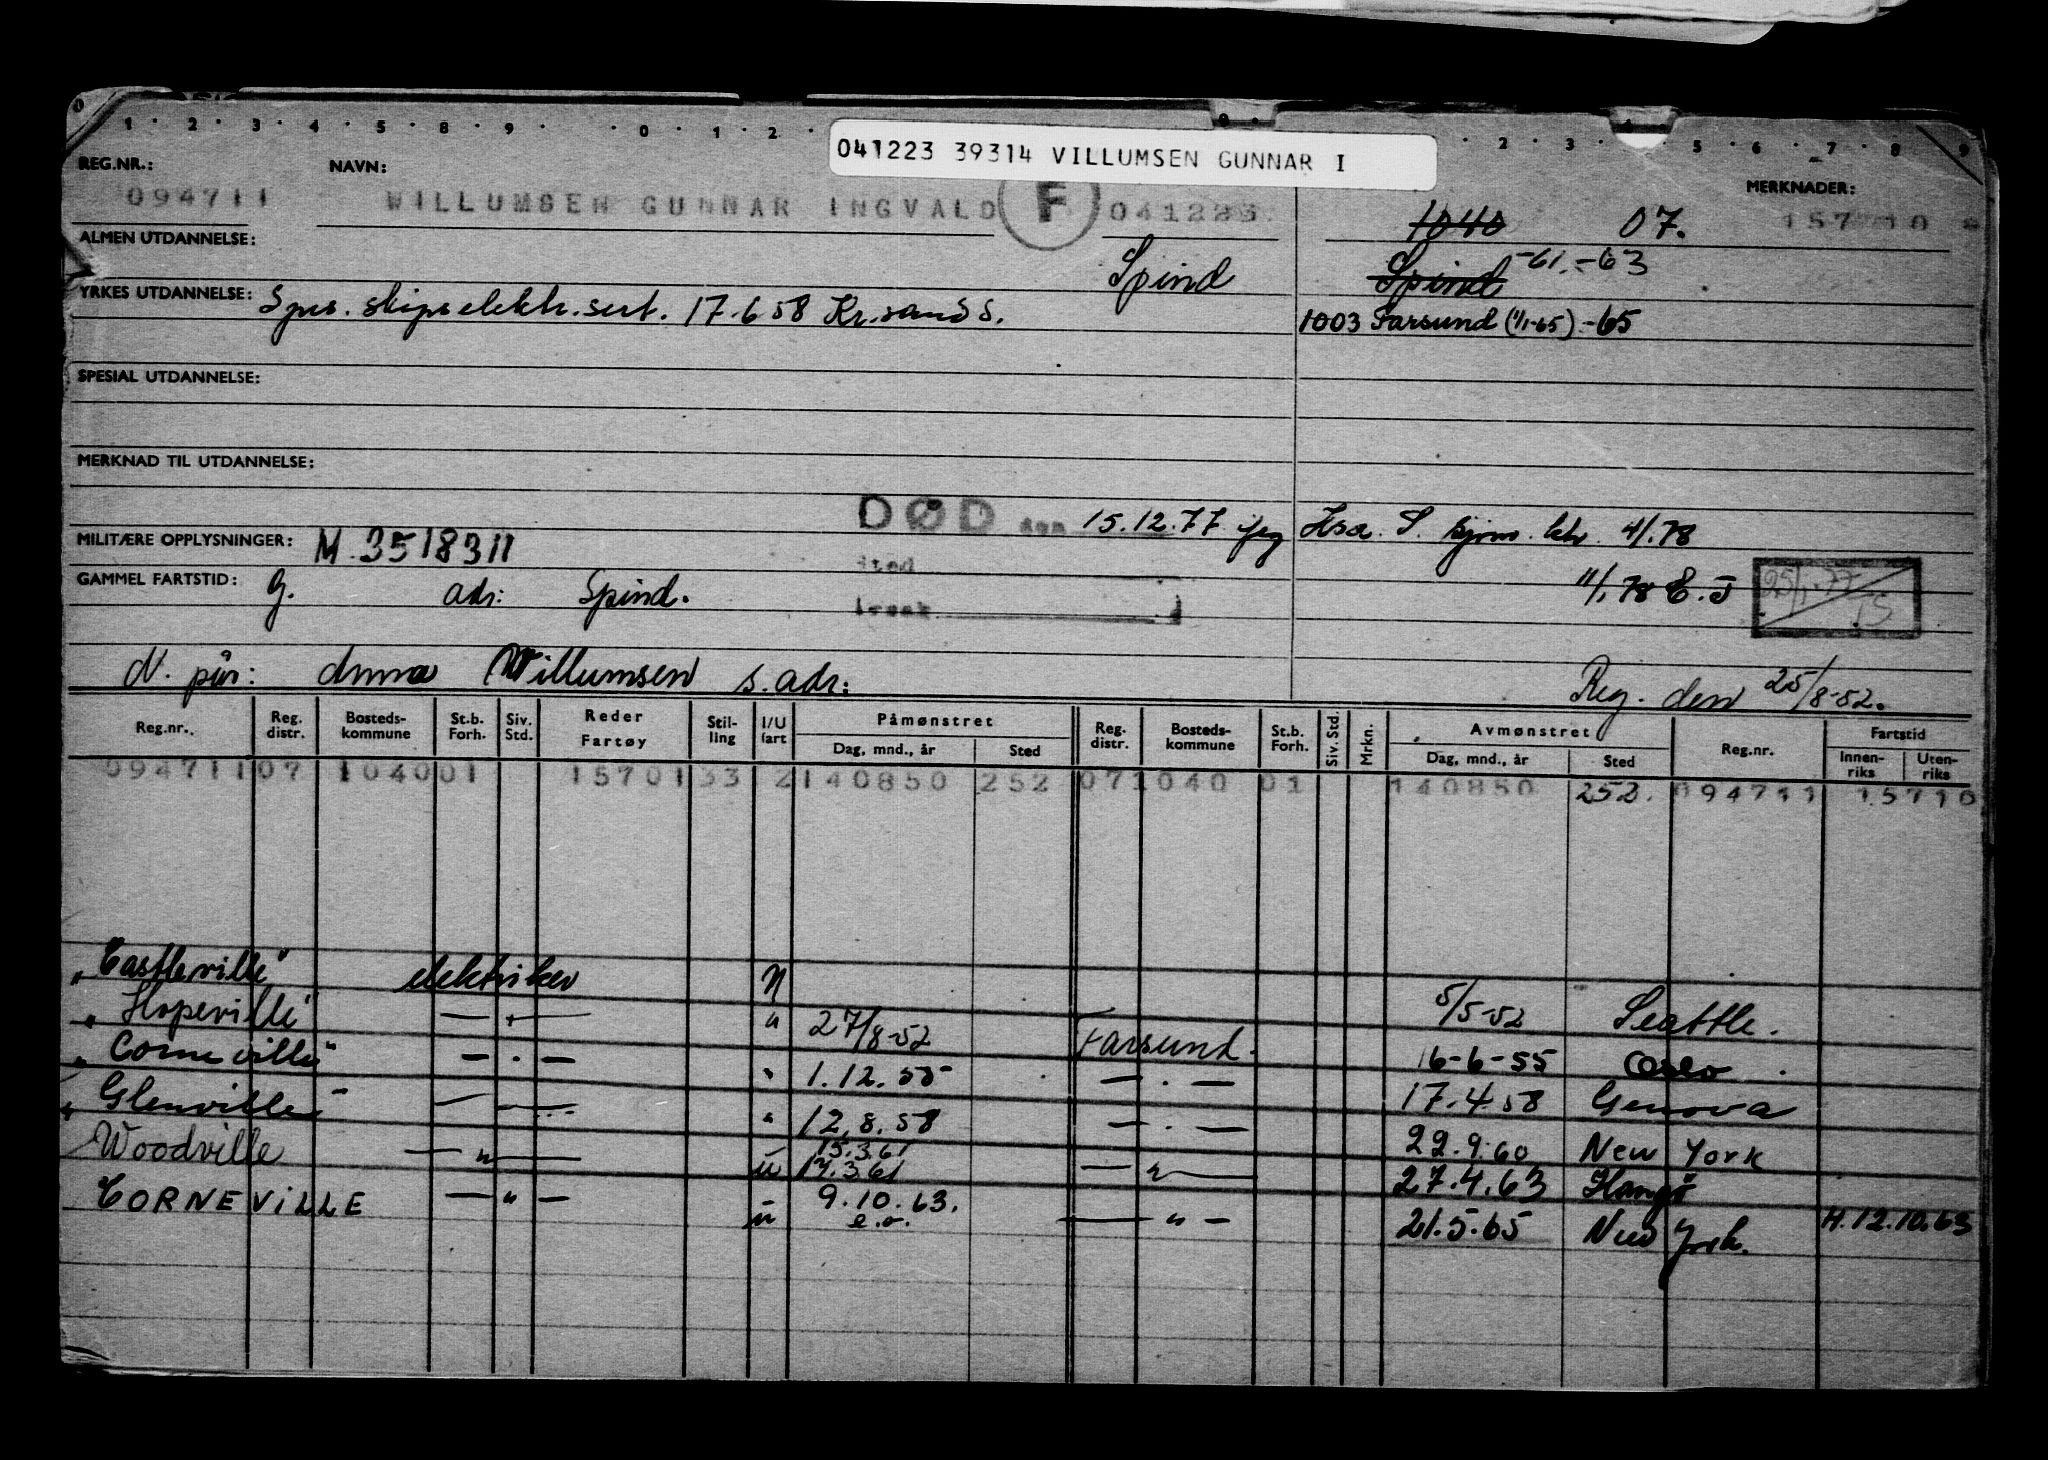 1 · 2 · 3 · 4 · 5 · 8 · 9 · · 0 · 1 · 2 · 2 · 3 · 5 · 6 · 7 · 8 · 9
041223 39314 VILLUMSEN GUNNAR I
REG.NR.: NAVN: MERKNADER:
094711 WILLUMSEN GUNNAR INGVALD F 041223 1040 07. 157710
ALMEN UTDANNELSE: Spind Spind -61.-63
YRKES UTDANNELSE: Spes. skipselektr.sert. 17.6 58 Kr.sand S. 1003 Farsund (1/1-65).-65
SPESIAL UTDANNELSE:
MERKNAD TIL UTDANNELSE:
DØD den 15.12.77 S. 4/1.78
MILITÆRE OPPLYSNINGER: M.3518311
sted
GAMMEL FARTSTID: G. adr: Spind. 11/1 78 E.J 25/1-77
årsak
N. pår: Anna Willumsen s. adr: Reg. den 25/8-52.
Reg.nr. Reg. distr. Bosteds-kommune St.b. Forh. Siv. Std. Reder Fartøy Stil-ling I/U fart Påmønstret Dag, mnd., år Sted Reg. distr. Bosteds-kommune St.b. Forh. Siv. Std. Mrkn. Avmønstret Dag, mnd., år Sted Reg.nr. Fartstid Innen-riks Uten-riks
094711 07 1040 01 15701 33 2 140850 252 07 1040 01 140850 252. 094711 15710
"Castleville" elektriker U 5/5-52 Seattle.
"Hopeville" — " — " 27/8-52 Farsund. 16-6-55 Oslo
"Corneville" — · — " 1.12.55 — · — 17.4.58 Genova
"Glenville" — " — " 12.8.58 — · — 22.9.60 New York
Woodville — " — u 15.3.61 17.3.61 — " — 27.4.63 Hangö
CORNEVILLE — " — u 9.10.63. e.o. — " — 21.5.65 New York. H.12.10.63